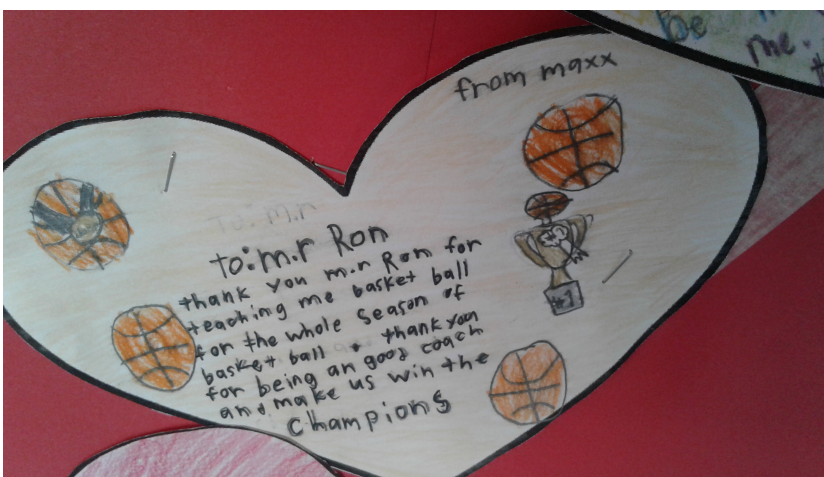 be
me.
from maxx
To: m.r
to: m.r Ron
thank you m.r Ron for
teaching me basket ball
for the whole season of
basket ball. thank you
for being an good coach
and make us win the
champions
#1